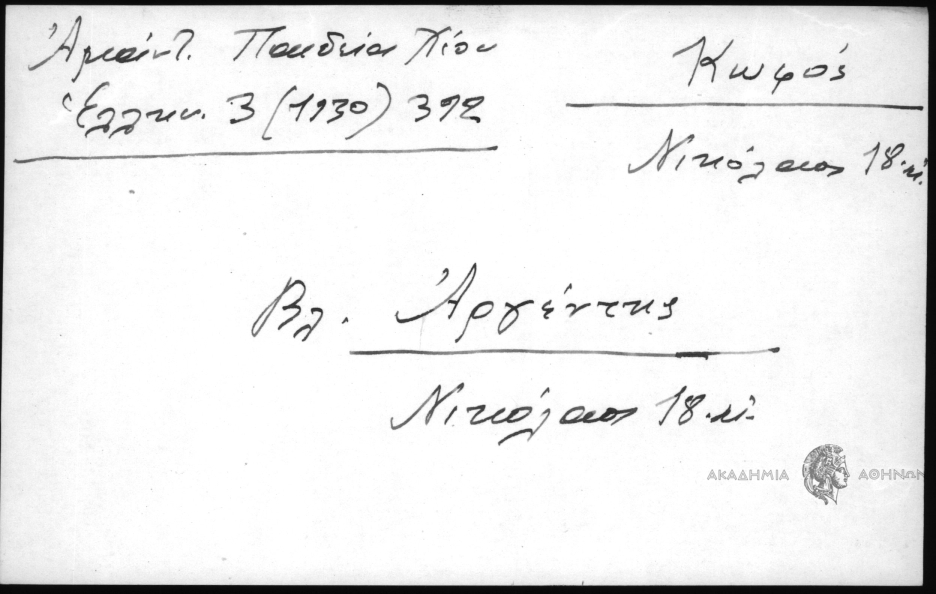 Ἀμάντ. Παιδεία Χίου
Ἑλλην. 3 (1930) 392
Κωφός
Νικόλαος 18.αἰ.
Βλ. Ἀργέντης
Νικόλαος 18.αἰ.
ΑΚΑΔΗΜΙΑ ΑΘΗΝΩΝ